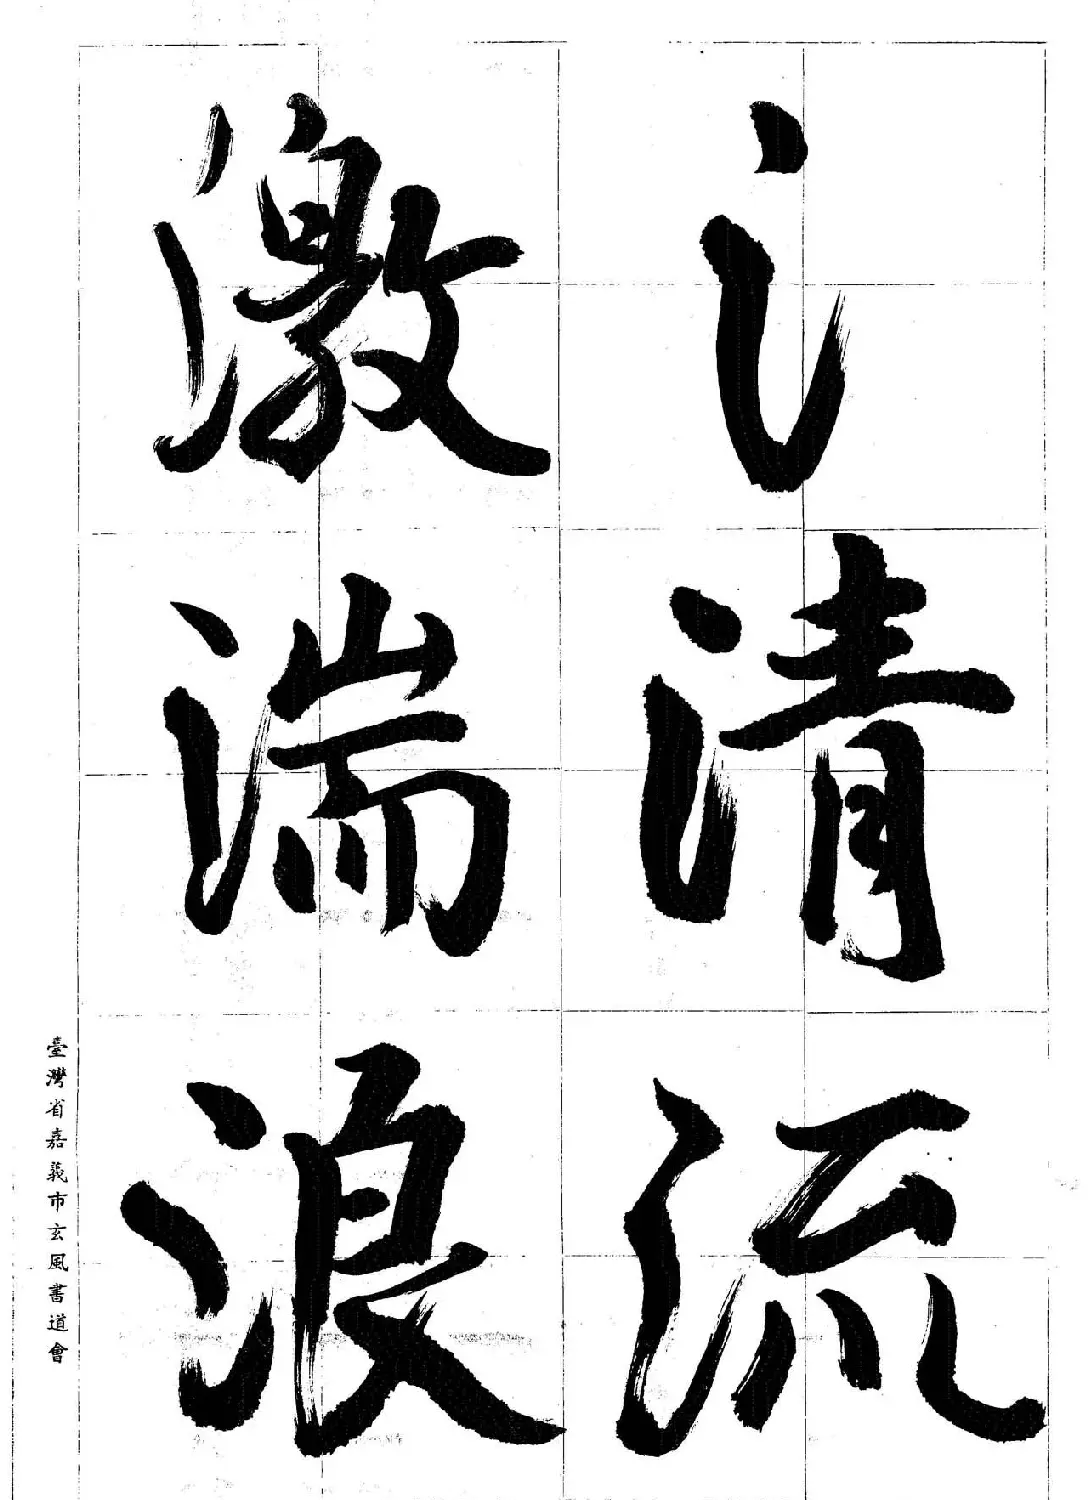 氵清流
激湍浪
臺灣省嘉義市玄風書道會